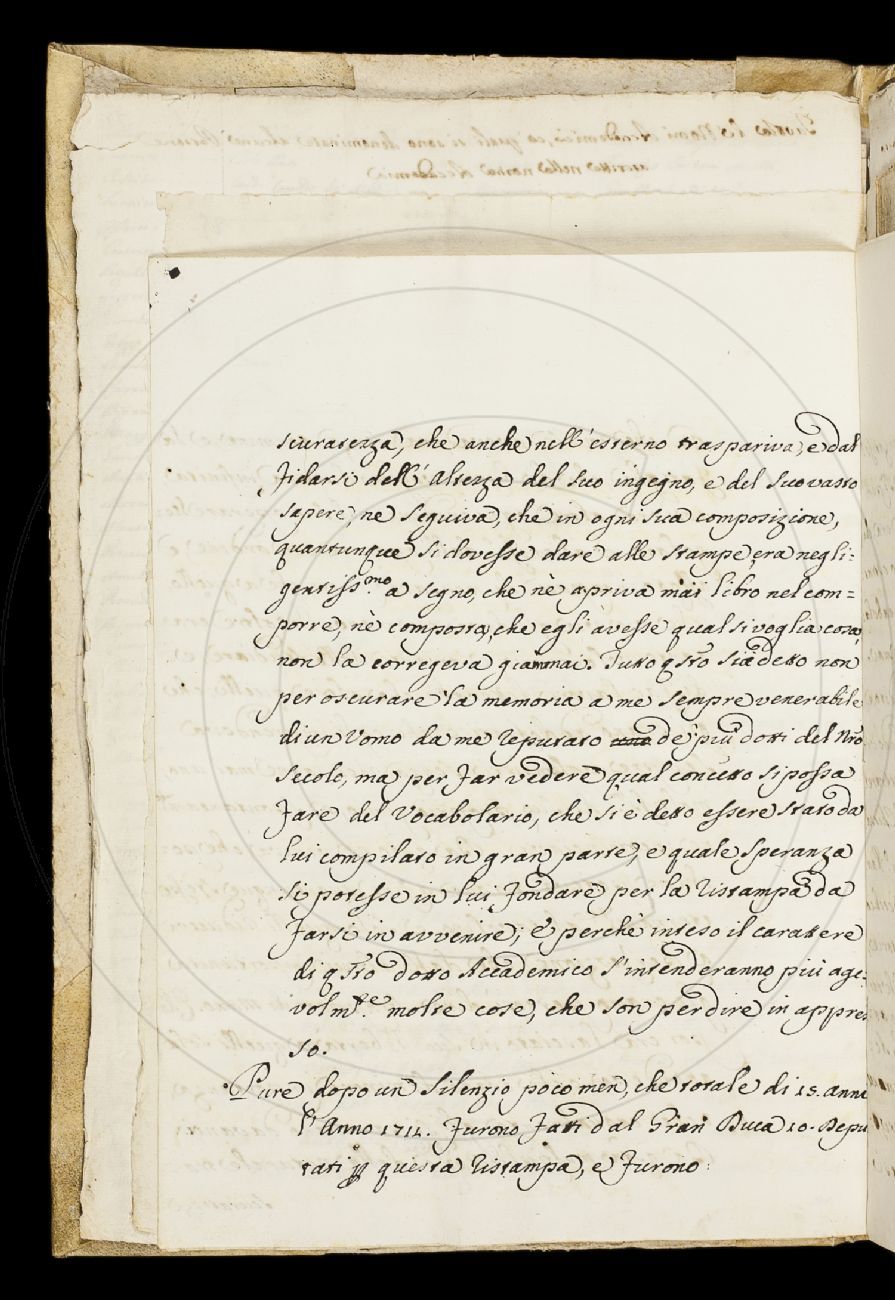 scuratezza, che anche nell'esterno traspariva, e dal
fidarsi dell'Altezza del suo ingegno, e del suo vasto
sapere, ne seguiva, che in ogni sua composizione,
quantunque si dovesse dare alle stampe, era negli=
gentiss.mo a segno, che nè apriva mai libro nel com=
porre, nè composta, che egli avesse qual si voglia cosa,
non la corregeva giammai. Tutto qsto sia detto non
per oscurare la memoria a me sempre venerabile
di un Uomo da me reputato de' più dotti del nro
secolo, ma per far vedere qual concetto si possa
fare del Vocabolario, che si è detto essere stato da
lui compilato in gran parte, e quale speranza
si potesse in lui fondare per la ristampa da
farsi in avvenire; e perchè inteso il carattere
di qsto dotto Accademico s'intenderanno più age=
volmte. molte cose, che son per dire in appres
so.
Pure dopo un silenzio poco men, che totale di 15. anni
l'Anno 1714. furono fatti dal Gran Duca 10. Depu
tati p questa ristampa, e furono: